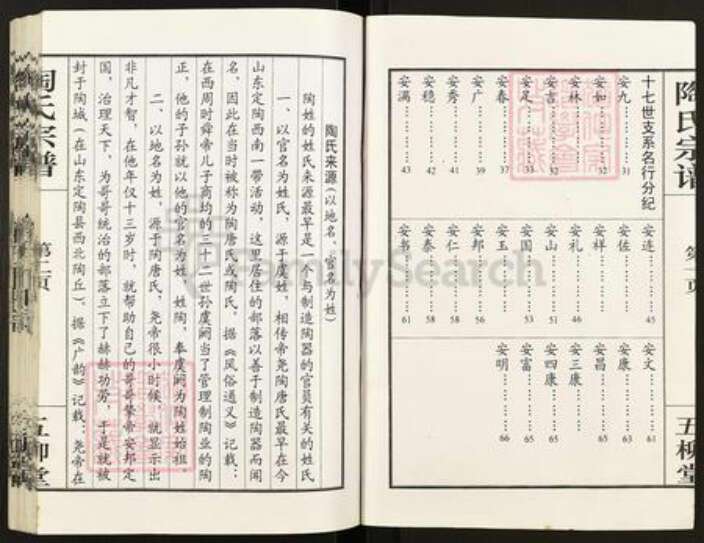 陶氏宗谱
第一页
五柳堂
十七世支系名行分纪
安九………31
安如………32
安林………32
安言………32
安足………33
安春………37
安广………39
安秀………41
安穗………42
安满………43
安连………45
安佐
安祥
安礼………46
安山………51
安国………53
安玉
安邦………56
安仁………58
安泰………58
安书………61
安文………61
安康………63
安昌………65
安三康
安四康………65
安富………65
安明………66
陶氏来源(以地名、官名为姓)
陶姓的姓氏来源最早是一个与制造陶器的官员有关的姓氏
一、以官名为姓氏,源于虞姓,相传帝尧陶唐氏最早在今
山东定陶西南一带活动,这里居住的部落以善于制造陶器而闻
名,因此在当时被称为陶唐氏或陶氏,据《风俗通义》记载:
在西周时舜帝儿子商均的三十二世孙虞阏当了管理制陶业的陶
正,他的子孙就以他的官名为姓,姓陶,奉虞阏为陶姓始祖
二、以地名为姓,源于陶唐氏,尧帝很小时候,就显示出
非凡才智,在他年仅十三岁时,就帮助自己的哥哥挚帝安邦定
国,治理天下,为哥哥统治的部落立下了赫赫功劳,于是就被
封于陶城(在山东定陶县西北陶丘)。据《广韵》记载:尧帝在
陶氏宗谱
第二页
五柳堂
FamilySearch